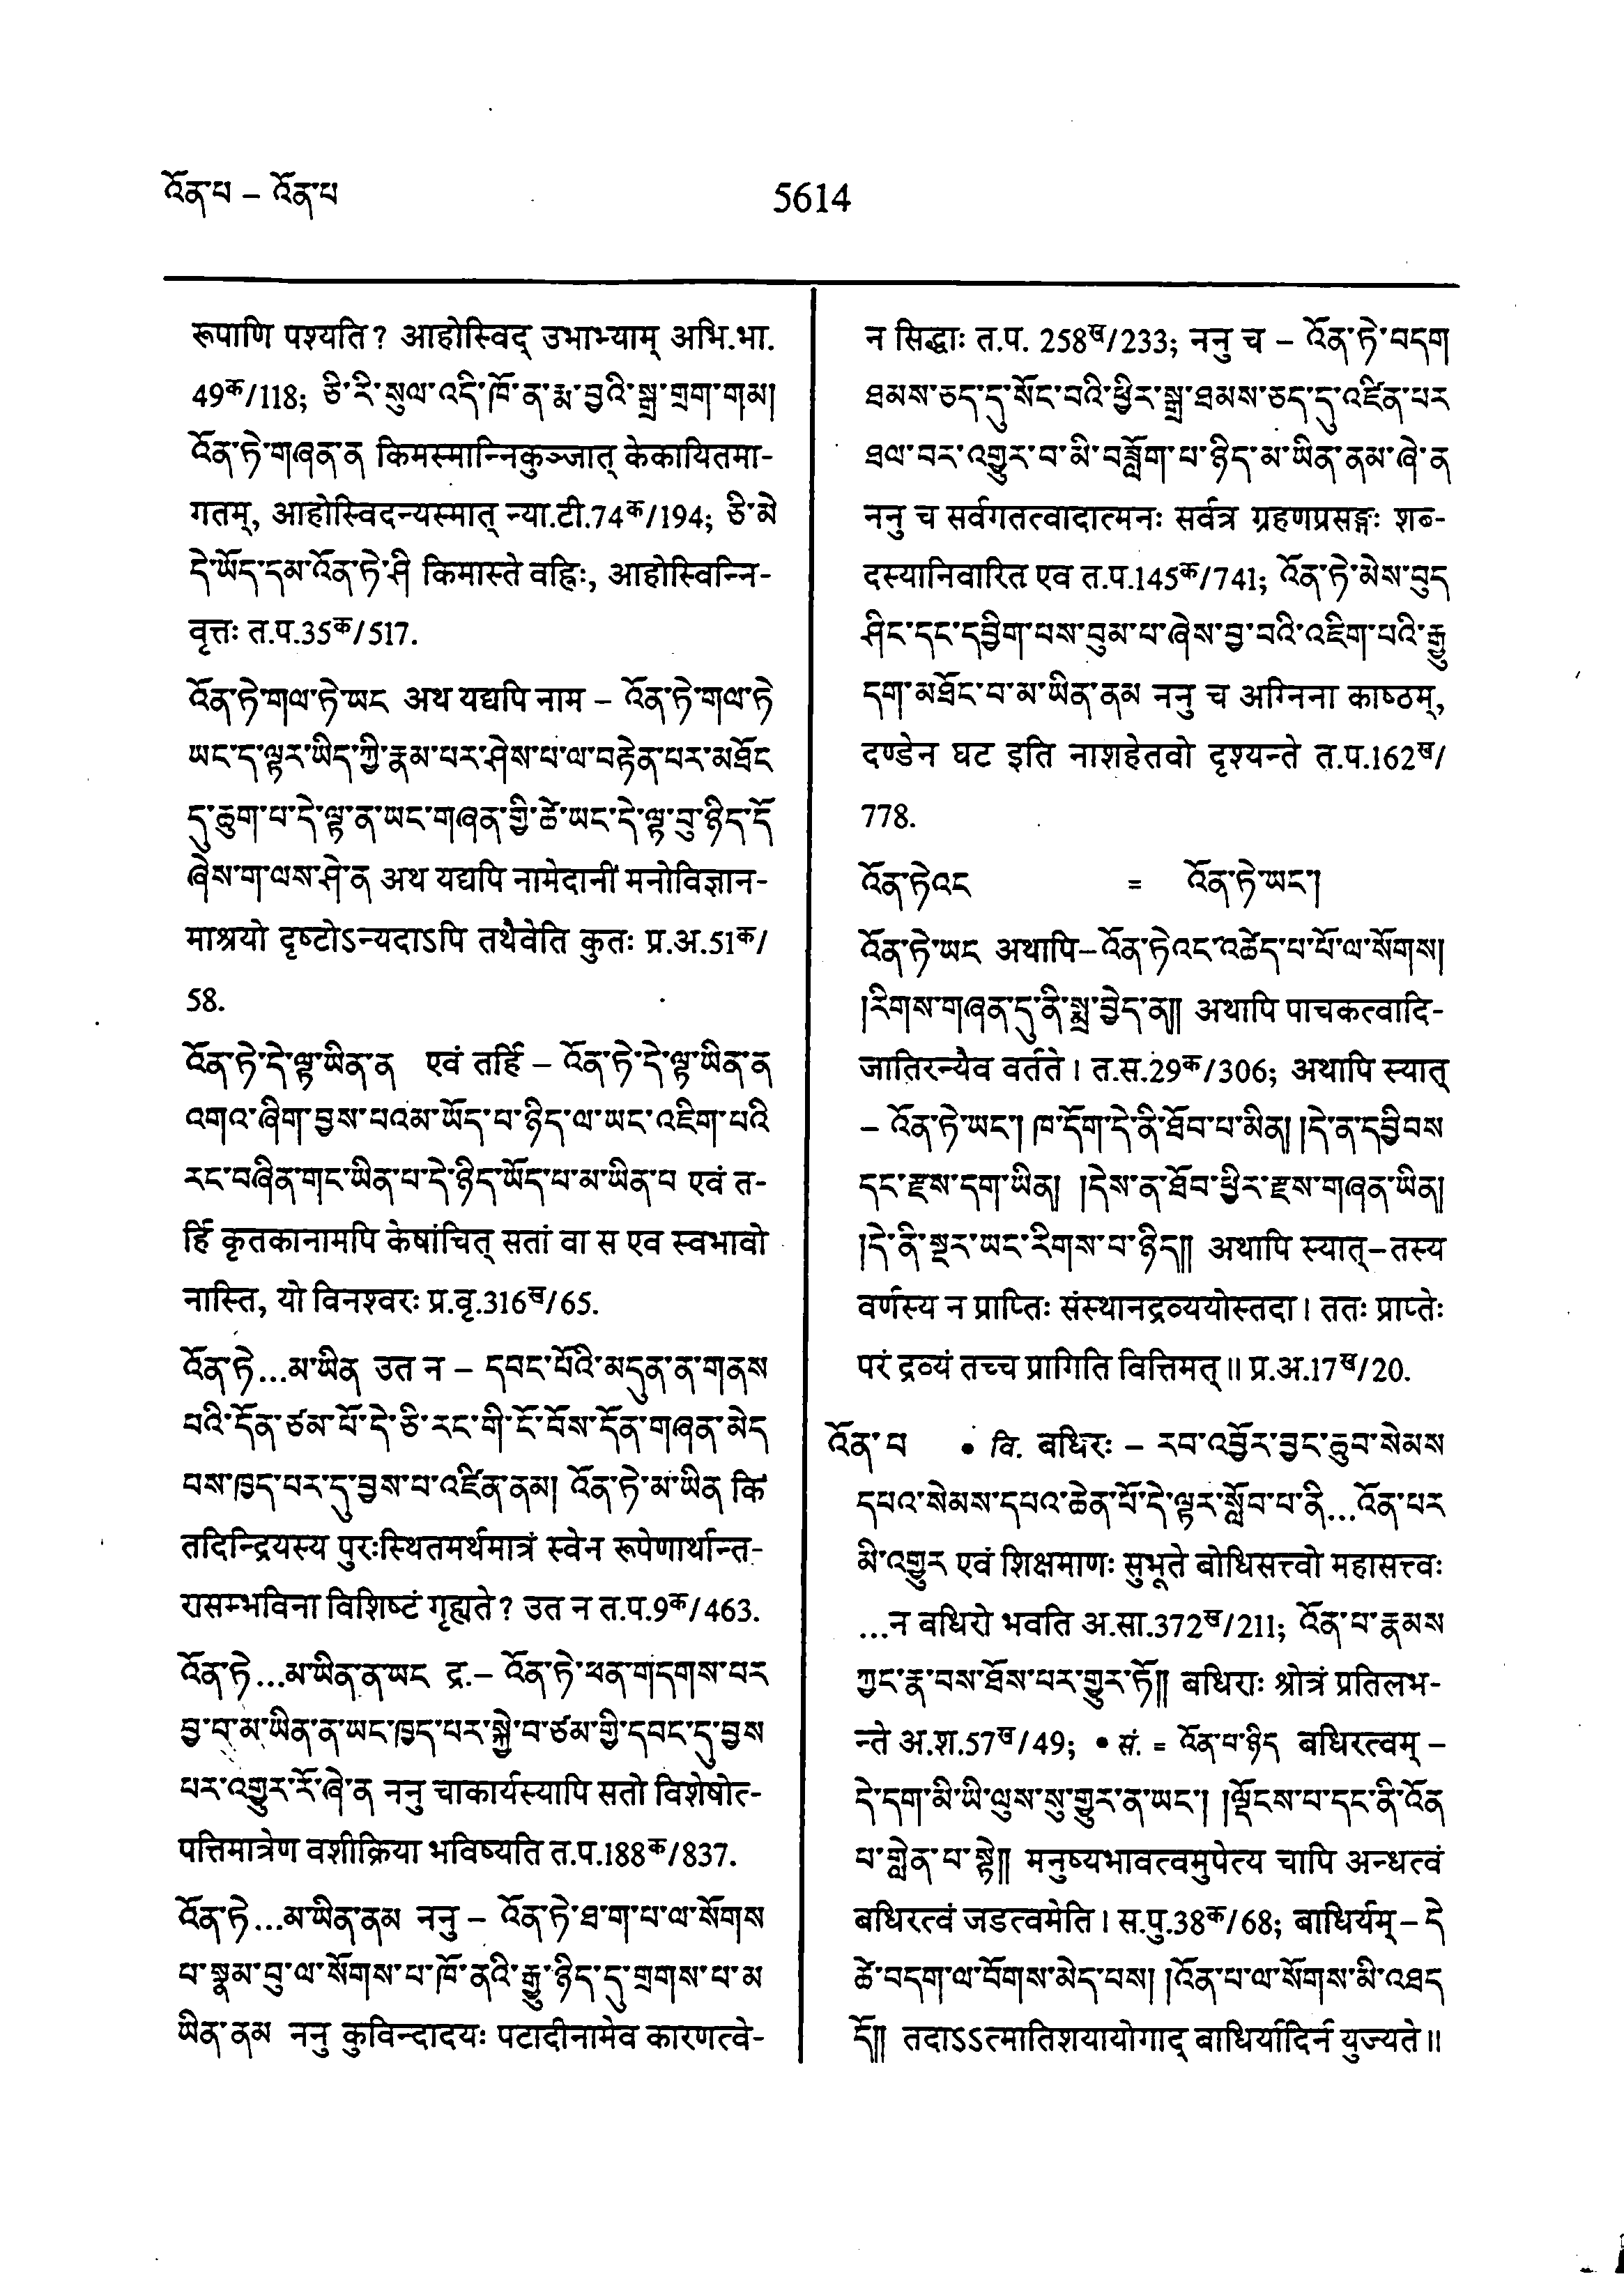 འོན་པ – འོན་པ
5614
रूपाणि पश्यति? आहोस्विद् उभाभ्याम् अभि.भा.
49क/118; ཅི་རི་སུལ་འདི་ཁོ་ན་རྨ་བྱའི་སྒྲ་གྲག་གམ།
འོན་ཏེ་གཞན་ན किमस्मान्निकुञ्जात् केकायितमा-
गतम्, आहोस्विदन्यस्मात् न्या.टी.74क/194; ཅི་མེ
དེ་ཡོད་དམ་འོན་ཏེ་ཤི किमास्ते वह्निः, आहोस्विन्नि-
वृत्तः त.प.35क/517.
འོན་ཏེ་གལ་ཏེ་ཡང अथ यद्यपि नाम – འོན་ཏེ་གལ་ཏེ
ཡང་ད་ལྟར་ཡིད་ཀྱི་རྣམ་པར་ཤེས་པ་ལ་བརྟེན་པར་མཐོང
དུ་ཆུག་པ་དེ་ལྟ་ན་ཡང་གཞན་གྱི་ཚེ་ཡང་དེ་ལྟ་བུ་ཉིད་དོ
ཞེས་ག་ལས་ཤེ་ན अथ यद्यपि नामेदानीं मनोविज्ञान-
माश्रयो दृष्टोऽन्यदाऽपि तथैवेति कुतः प्र.अ.51क/
58.
འོན་ཏེ་དེ་ལྟ་ཡིན་ན एवं तर्हि – འོན་ཏེ་དེ་ལྟ་ཡིན་ན
འགའ་ཞིག་བྱས་པའམ་ཡོད་པ་ཉིད་ལ་ཡང་འཇིག་པའི
རང་བཞིན་གང་ཡིན་པ་དེ་ཉིད་ཡོད་པ་མ་ཡིན་པ एवं त-
र्हि कृतकानामपि केषांचित् सतां वा स एव स्वभावो
नास्ति, यो विनश्वरः प्र.वृ.316ख/65.
འོན་ཏེ...མ་ཡིན उत न – དབང་པོའི་མདུན་ན་གནས
པའི་དོན་ཙམ་པོ་དེ་ཅི་རང་གི་ངོ་བོས་དོན་གཞན་མེད
པས་ཁྱད་པར་དུ་བྱས་པ་འཛིན་ནམ། འོན་ཏེ་མ་ཡིན किं
तदिन्द्रियस्य पुरःस्थितमर्थमात्रं स्वेन रूपेणार्थान्त-
रासम्भविना विशिष्टं गृह्यते? उत न त.प.9क/463.
འོན་ཏེ...མ་ཡིན་ན་ཡང द्र.– འོན་ཏེ་ཕན་གདགས་པར
བྱ་བ་མ་ཡིན་ན་ཡང་ཁྱད་པར་སྐྱེ་བ་ཙམ་གྱི་དབང་དུ་བྱས
པར་འགྱུར་རོ་ཞེ་ན ननु चाकार्यस्यापि सतो विशेषोत्-
पत्तिमात्रेण वशीक्रिया भविष्यति त.प.188क/837.
འོན་ཏེ...མ་ཡིན་ནམ ननु – འོན་ཏེ་ཐ་ག་པ་ལ་སོགས
པ་སྣམ་བུ་ལ་སོགས་པ་ཁོ་ནའི་རྒྱུ་ཉིད་དུ་གྲགས་པ་མ
ཡིན་ནམ ननु कुविन्दादयः पटादीनामेव कारणत्वे-
न सिद्धाः त.प. 258ख/233; ननु च – འོན་ཏེ་བདག
ཐམས་ཅད་དུ་སོང་བའི་ཕྱིར་སྒྲ་ཐམས་ཅད་དུ་འཛིན་པར
ཐལ་བར་འགྱུར་བ་མི་བཟློག་པ་ཉིད་མ་ཡིན་ནམ་ཞེ་ན
ननु च सर्वगतत्वादात्मनः सर्वत्र ग्रहणप्रसङ्गः शब-
दस्यानिवारित एव त.प.145क/741; འོན་ཏེ་མེས་བུད
ཤིང་དང་དབྱིག་པས་བུམ་པ་ཞེས་བྱ་བའི་འཇིག་པའི་རྒྱུ
དག་མཐོང་བ་མ་ཡིན་ནམ ननु च अग्निना काष्ठम्,
दण्डेन घट इति नाशहेतवो दृश्यन्ते त.प.162ख/
778.
འོན་ཏེའང = འོན་ཏེ་ཡང་།
འོན་ཏེ་ཡང अथापि–འོན་ཏེའང་འཚེད་པ་པོ་ལ་སོགས།
།རིགས་གཞན་དུ་ནི་སྨྲ་བྱེད་ན།། अथापि पाचकत्वादि-
जातिरन्यैव वर्तते। त.स.29क/306; अथापि स्यात्
– འོན་ཏེ་ཡང་། ཁ་དོག་དེ་ནི་ཐོབ་པ་མིན། །དེ་ན་དབྱིབས
དང་རྫས་དག་ཡིན། །དེས་ན་ཐོབ་ཕྱིར་རྫས་གཞན་ཡིན།
།དེ་ནི་སྔར་ཡང་རིགས་པ་ཉིད།། अथापि स्यात्–तस्य
वर्णस्य न प्राप्तिः संस्थानद्रव्ययोस्तदा। ततः प्राप्तेः
परं द्रव्यं तच्च प्रागिति वित्तिमत्॥ प्र.अ.17ख/20.
འོན་པ • वि. बधिरः – རབ་འབྱོར་བྱང་ཆུབ་སེམས
དཔའ་སེམས་དཔའ་ཆེན་པོ་དེ་ལྟར་སློབ་པ་ནི...འོན་པར
མི་འགྱུར एवं शिक्षमाणः सुभूते बोधिसत्त्वो महासत्त्वः
...न बधिरो भवति अ.सा.372ख/211; འོན་པ་རྣམས
ཀྱང་རྣ་བས་ཐོས་པར་གྱུར་ཏོ།། बधिराः श्रोत्रं प्रतिलभ-
न्ते अ.श.57ख/49; • सं. = འོན་པ་ཉིད बधिरत्वम् –
དེ་དག་མི་ཡི་ལུས་སུ་གྱུར་ན་ཡང་། །ལྡོངས་པ་དང་ནི་འོན
པ་གླེན་པ་སྟེ།། मनुष्यभावत्वमुपेत्य चापि अन्धत्वं
बधिरत्वं जडत्वमेति। स.पु.38क/68; बाधिर्यम् – དེ
ཚེ་བདག་ལ་བོགས་མེད་པས། །འོན་པ་ལ་སོགས་མི་འཐད
དོ།། तदाऽऽत्मातिशयायोगाद् बाधिर्यादिर्न युज्यते॥